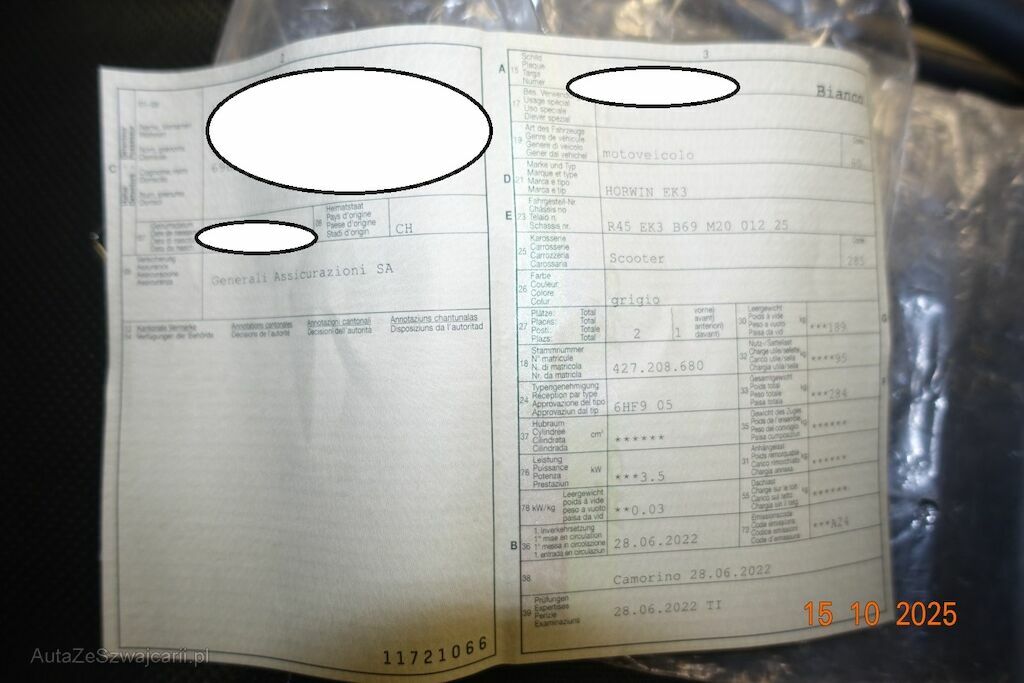 2
C
69
Heimatstaat
Pays d'origine
Paese d'origine
Stadi d'origin
CH
Versicherung
Assurance
Assicurazione
Generali Assicurazioni SA
Kantonale Vermerke
Verfügungen der Behörde
Annotations cantonales
Décisions de l'autorité
Annotazioni cantonali
Decisioni dell'autorità
Annotaziuns chantunalas
Disposiziuns da l'autoritad
11721066
3
A 15 Schild
Plaque
Targa
Numer
Bianco
17 Bes. Verwend.
Usage spécial
Uso speciale
Diever spezial
19 Art des Fahrzeugs
Genre de véhicule
Genere di veicolo
Gener dal vehichel
motoveicolo
Code
D 21 Marke und Typ
Marque et type
Marca e tipo
Marca e tip
HORWIN EK3
E 23 Fahrgestell-Nr.
Châssis no
Telaio n.
Schassis nr.
R45 EK3 B69 M20 012 25
25 Karosserie
Carrosserie
Carrozzeria
Carossaria
Scooter
Code
285
26 Farbe
Couleur
Colore
Colur
grigio
27 Plätze: Total
Places: Total
Posti: Totale
Plazs: Total
2
1
vorne)
avant)
anteriori)
davant)
30 Leergewicht
Poids à vide
Peso a vuoto
Paisa da vid
kg
***189
G
18 Stammnummer
N° matricule
N. di matricola
Nr. da matricla
427.208.680
32 Nutz-/Sattellast
Charge utile/sellette
Carico utile/sella
Chargia utila/sella
kg
****95
24 Typengenehmigung
Réception par type
Approvazione del tipo
Approvaziun dal tip
6HF9 05
33 Gesamtgewicht
Poids total
Peso totale
Paisa totala
kg
***284
F
37 Hubraum
Cylindrée
Cilindrata
Cilindrada
cm³
******
35 Gewicht des Zuges
Poids de l'ensemble
Peso del convoglio
Paisa cumposiziun
kg
******
76 Leistung
Puissance
Potenza
Prestaziun
kW
***3.5
31 Anhängelast
Poids remorquable
Carico rimorchiato
Chargia annexa
kg
******
78 kW/kg
Leergewicht
poids à vide
peso a vuoto
paisa da vid
**0.03
55 Dachlast
Charge sur le toit
Carico sul tetto
Chargia sin il tetg
kg
******
B 36 1. Inverkehrsetzung
1re mise en circulation
1a messa in circolazione
1. entrada en circulaziun
28.06.2022
72 Emissionscode
Code émissions
Codice emissioni
Code d'emissiuns
***A24
38
Camorino 28.06.2022
39 Prüfungen
Expertises
Perizie
Examinaziuns
28.06.2022 TI
15 10 2025
AutaZeSzwajcarii.pl